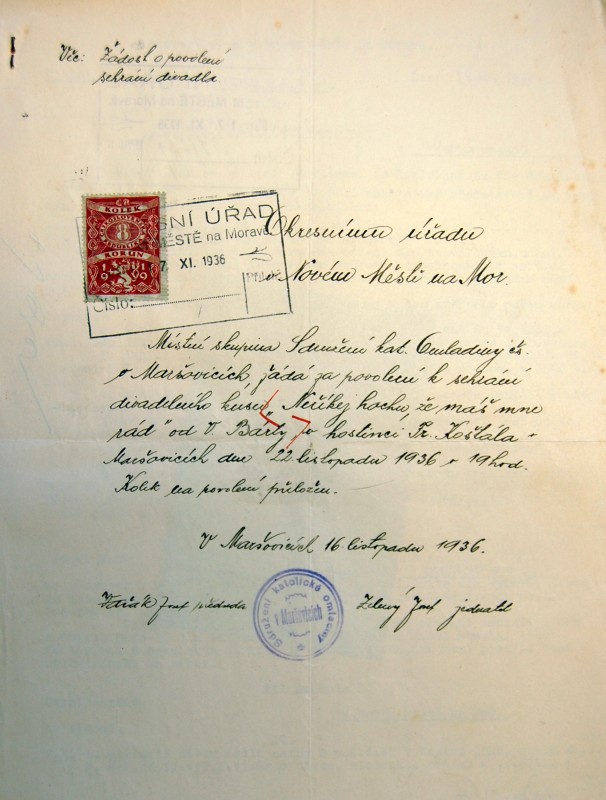 Věc: Žádost o povolení
sehrání divadla.
KOLEK
8
KORUN
SNÍ ÚŘAD
MĚSTĚ na Moravě
7. XI. 1936
Číslo:
Okresnímu úřadu
v Novém Městě na Mor.
Místní skupina Sdružení kat. Omladiny čs.
v Maršovicích, žádá za povolení k sehrání
divadelního kusu „Neříkej hochu, že máš mne
rád" od V. Bárty, v hostinci Fr. Košťála v
Maršovicích dne 22. listopadu 1936 v 19 hod.
Kolek na povolení přiložen.
V Maršovicích 16. listopadu 1936.
Josef předseda
Sdružení katolické omladiny
v Maršovicích
Zelený Josef jednatel